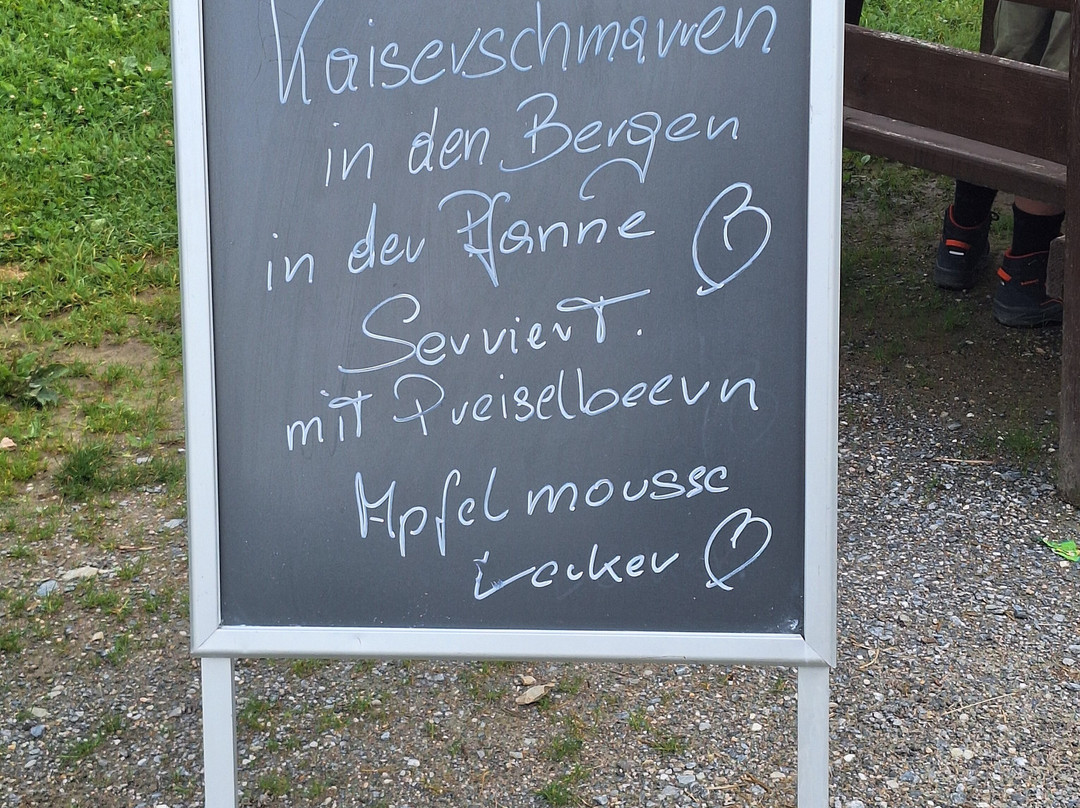 Kaiserschmarren
in den Bergen
in der Pfanne
Serviert.
mit Preiselbeern
Apfelmousse
Lecker